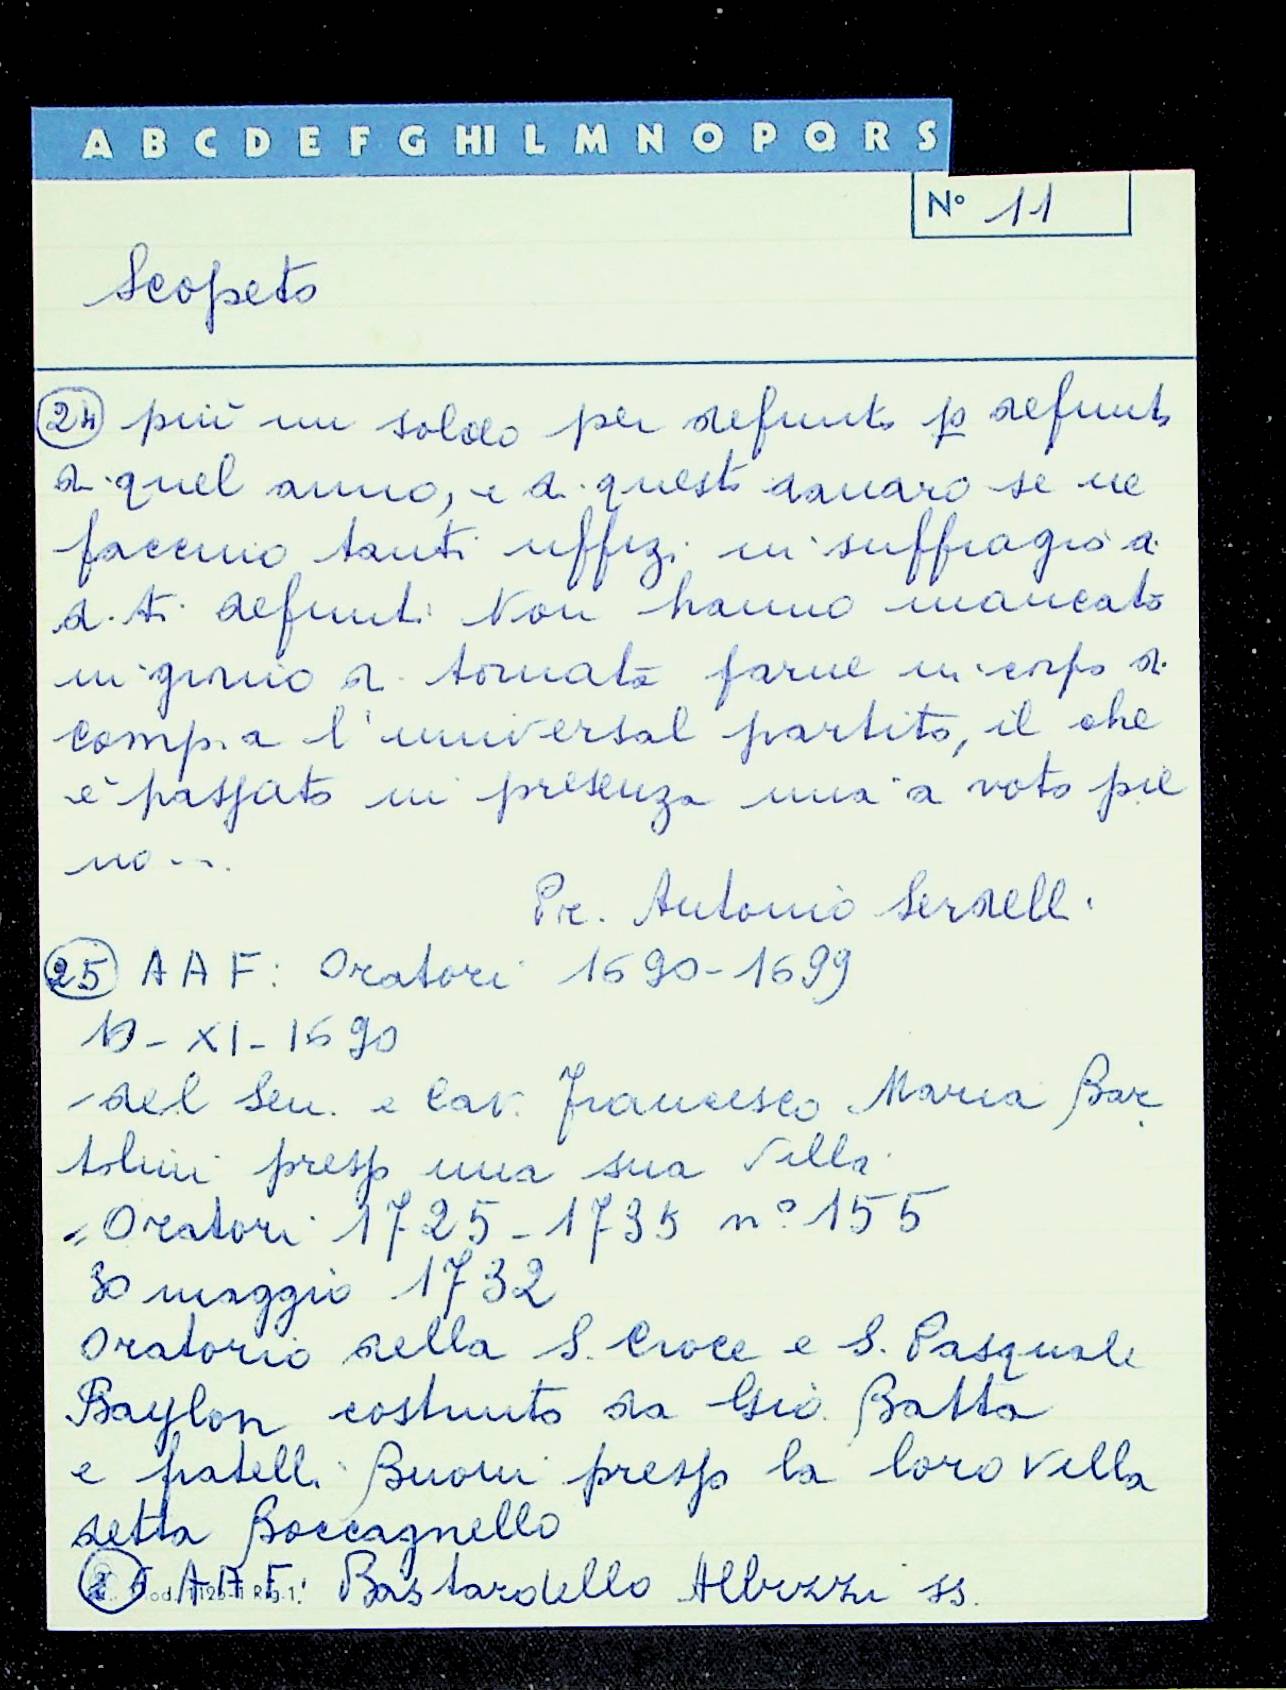 A B C D E F G HI L M N O P Q R S
N° 11
Scopeto
24 più un soldo per defunto p defunto
di quel anno, e di questo danaro se ne
faccino tanti uffizi in suffragio di
d.ti defunti Non hanno mancato
in giorno di tornata farne in corpo di
comp.a l'universal partito, il che
è passato in presenza mia a voto pie
no ...
Pre. Antonio Serdelli
25 A A F: Oratori 1690-1699
10-XI-1690
-del Sen. e Cav. Francesco Maria Bar
tolini presso una sua villa
= Oratori 1725-1735 n° 155
30 maggio 1732
Oratorio della S. Croce e S. Pasquale
Baylon costruito da Gio. Batta
e fratelli Buoni presso la loro villa
detta Boccagnello
A A F: Bastardello Albizzi ss.